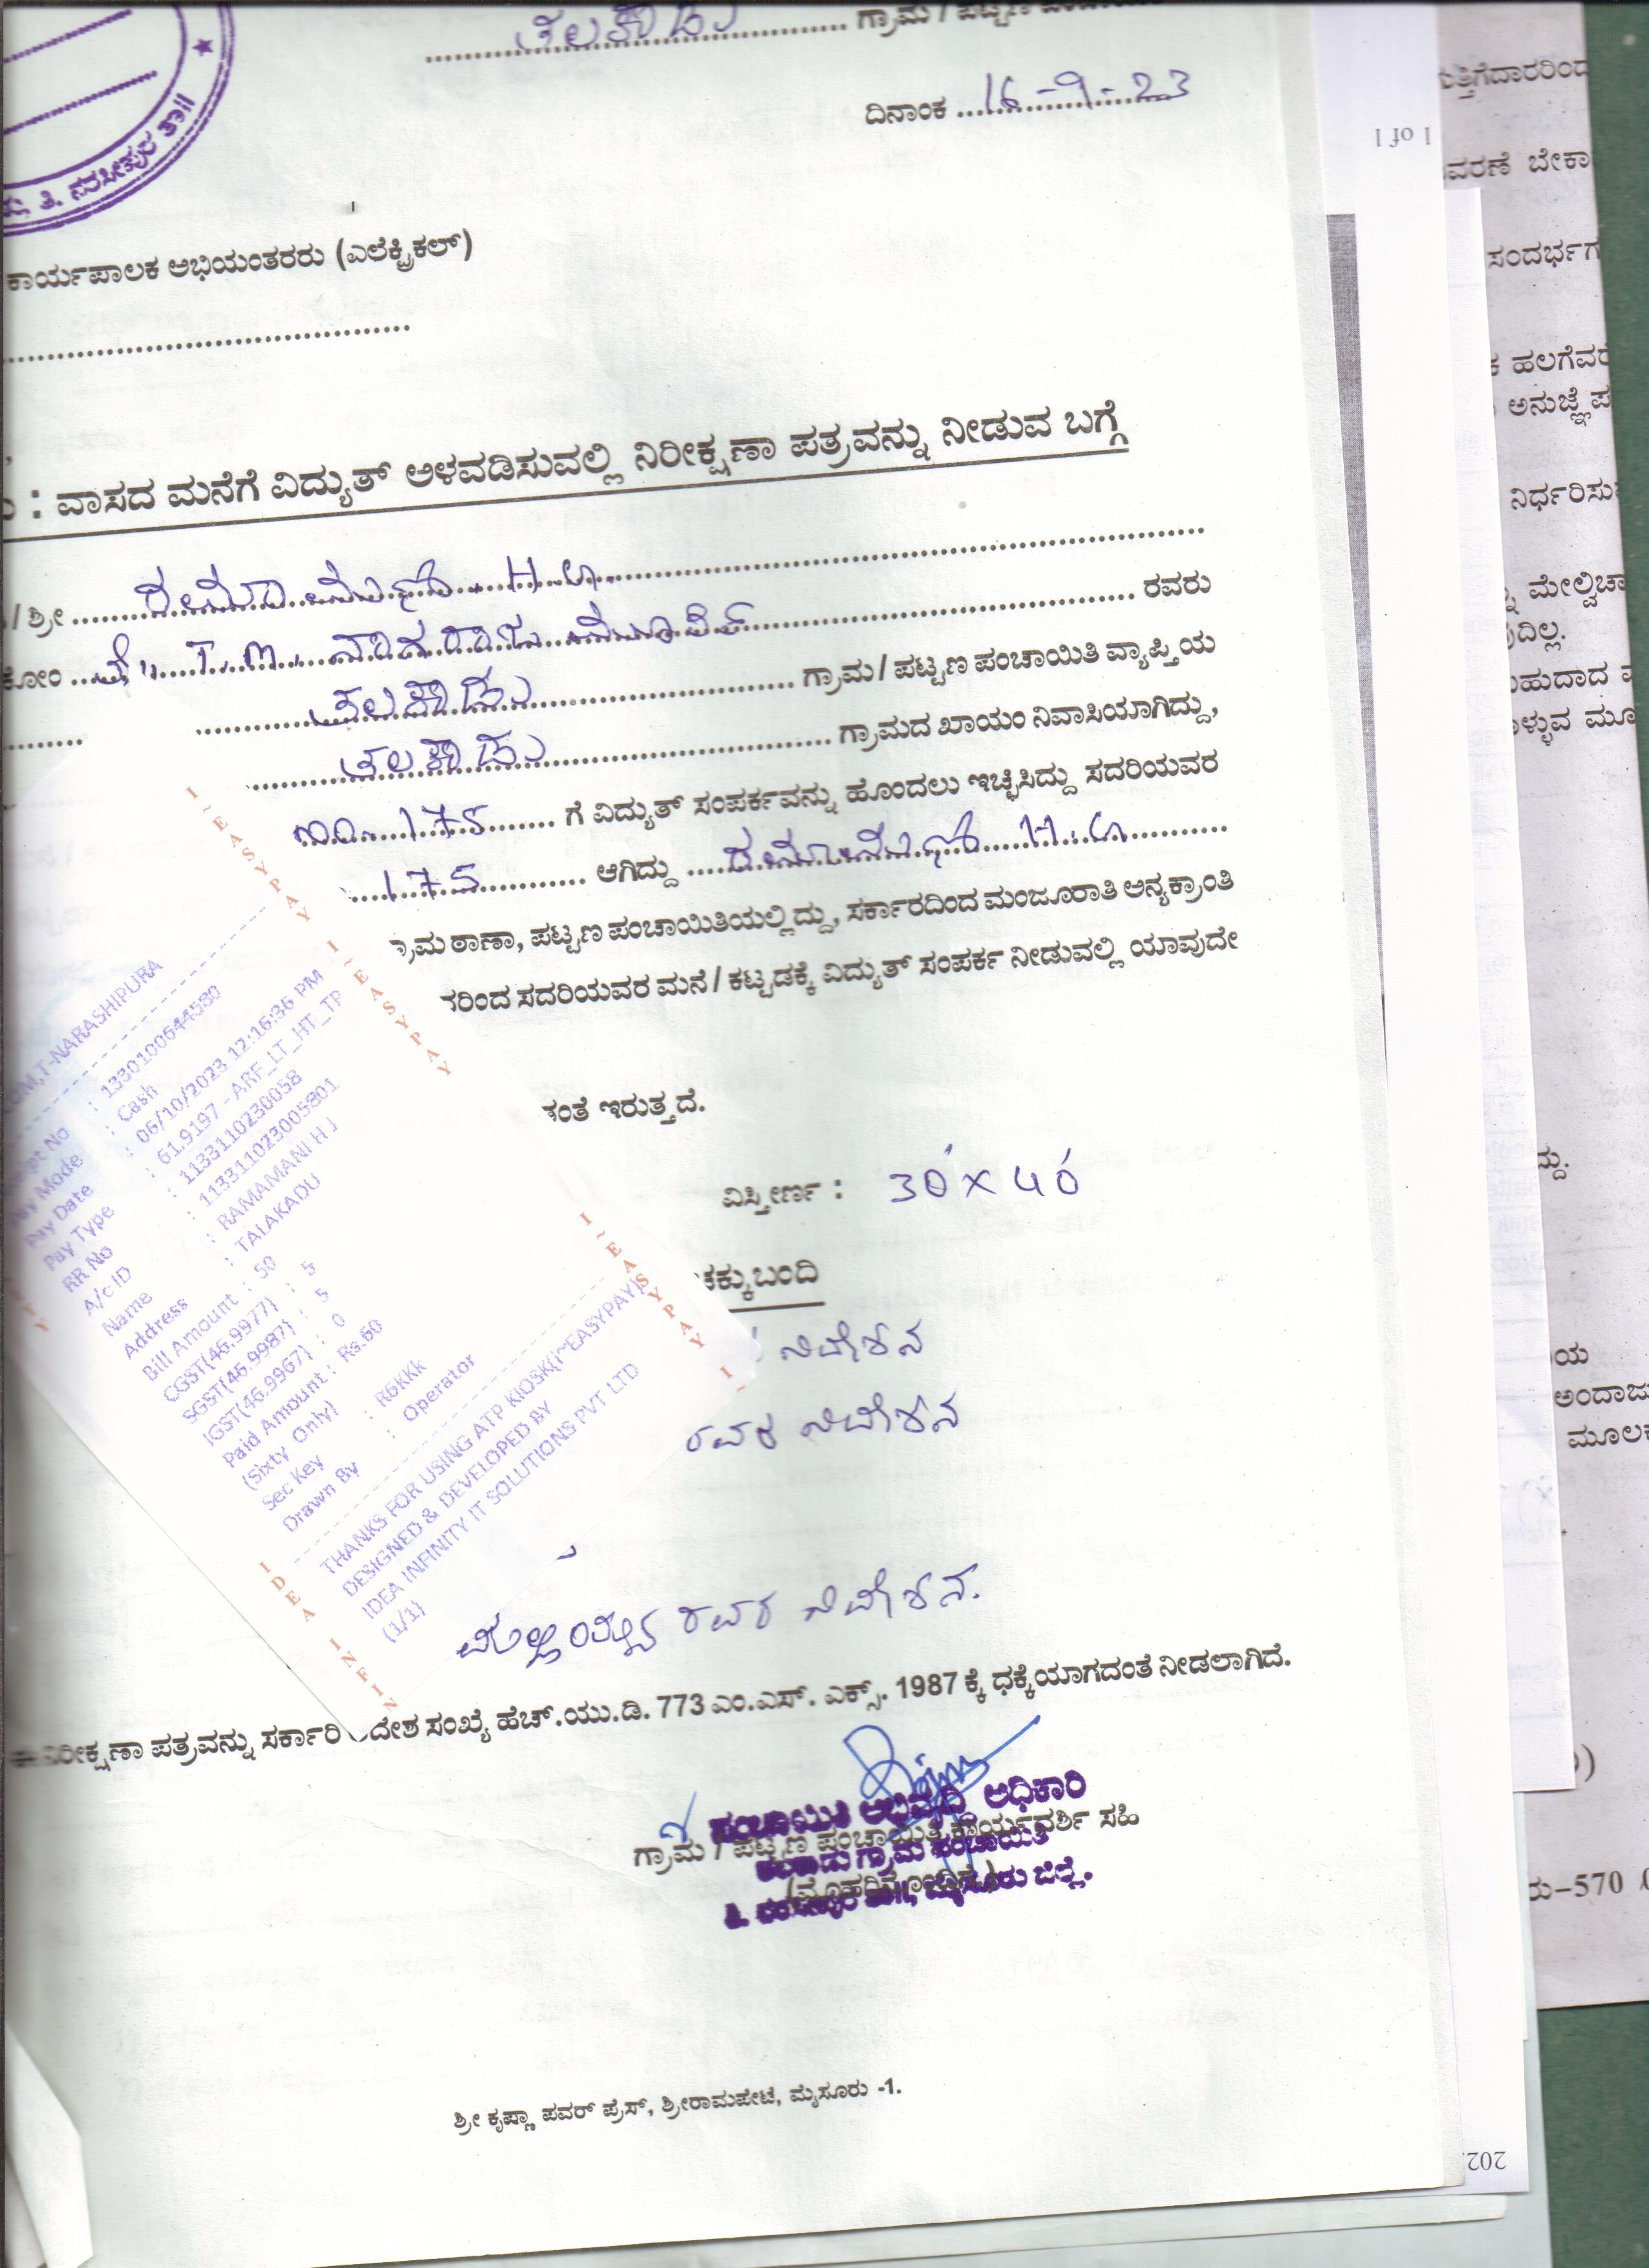 ತಲಕಾಡು ಗ್ರಾಮ / ಪಟ್ಟಣ
ದಿನಾಂಕ 16-9-23
ತಿ. ನರಸೀಪುರ ತಾ||
ಕಾರ್ಯಪಾಲಕ ಅಭಿಯಂತರರು (ಎಲೆಕ್ಟ್ರಿಕಲ್)
: ವಾಸದ ಮನೆಗೆ ವಿದ್ಯುತ್ ಅಳವಡಿಸುವಲ್ಲಿ ನಿರೀಕ್ಷಣಾ ಪತ್ರವನ್ನು ನೀಡುವ ಬಗ್ಗೆ
/ ಶ್ರೀ ರಮಾಮಣಿ. H.J.
ಕೋಂ ಲೇ|| T.M. ನಾಗರಾಜ ಮೂರ್ತಿ ರವರು
ತಲಕಾಡು ಗ್ರಾಮ / ಪಟ್ಟಣ ಪಂಚಾಯಿತಿ ವ್ಯಾಪ್ತಿಯ
ತಲಕಾಡು ಗ್ರಾಮದ ಖಾಯಂ ನಿವಾಸಿಯಾಗಿದ್ದು,
175 ಗೆ ವಿದ್ಯುತ್ ಸಂಪರ್ಕವನ್ನು ಹೊಂದಲು ಇಚ್ಛಿಸಿದ್ದು ಸದರಿಯವರ
175 ಆಗಿದ್ದು ರಮಾಮಣಿ H.J
ಗ್ರಾಮ ಠಾಣಾ, ಪಟ್ಟಣ ಪಂಚಾಯಿತಿಯಲ್ಲಿದ್ದು, ಸರ್ಕಾರದಿಂದ ಮಂಜೂರಾತಿ ಅನ್ಯಕ್ರಾಂತಿ
ನರಿಂದ ಸದರಿಯವರ ಮನೆ / ಕಟ್ಟಡಕ್ಕೆ ವಿದ್ಯುತ್ ಸಂಪರ್ಕ ನೀಡುವಲ್ಲಿ ಯಾವುದೇ
ಕಂತೆ ಇರುತ್ತದೆ.
ವಿಸ್ತೀರ್ಣ : 30' X 40'
ಚಕ್ಕುಬಂದಿ
ನಿವೇಶನ
ರವರ ನಿವೇಶನ
ಮಲ್ಲಯ್ಯನ ರವರ ನಿವೇಶನ.
ನಿರೀಕ್ಷಣಾ ಪತ್ರವನ್ನು ಸರ್ಕಾರಿ ಆದೇಶ ಸಂಖ್ಯೆ ಹೆಚ್.ಯು.ಡಿ. 773 ಎಂ.ಎಸ್. ಎಕ್ಸ್. 1987 ಕ್ಕೆ ಧಕ್ಕೆಯಾಗದಂತೆ ನೀಡಲಾಗಿದೆ.
ಪಂಚಾಯಿತಿ ಅಭಿವೃದ್ಧಿ ಅಧಿಕಾರಿ
ಗ್ರಾಮ / ಪಟ್ಟಣ ಪಂಚಾಯಿತಿ ಕಾರ್ಯದರ್ಶಿ ಸಹಿ
ತಲಕಾಡು ಗ್ರಾಮ ಪಂಚಾಯಿತಿ
(ಮೊಹರಿನೊಂದಿಗೆ)
ತಿ. ನರಸೀಪುರ ತಾ||, ಮೈಸೂರು ಜಿಲ್ಲೆ.
ಶ್ರೀ ಕೃಷ್ಣಾ ಪವರ್ ಪ್ರೆಸ್, ಶ್ರೀರಾಮಪೇಟೆ, ಮೈಸೂರು -1.
T-NARASHIPURA
Receipt No : 1330100644580
Pay Mode : Cash
Pay Date : 06/10/2023 12:16:36 PM
Pay Type : 61.9197 - ARF_LT_HT_TP
RR No : 113311023​0058
A/c ID : 1133110230​05801
Name : RAMAMANI H J
Address : TALAKADU
Bill Amount : 50
CGST(46.9977) : 5
SGST(46.9987) : 5
IGST(46.9967) : 0
Paid Amount : Rs.60
(Sixty Only)
Sec Key : R6KKk
Drawn By : Operator
THANKS FOR USING ATP KIOSK(i~EASYPAY)
DESIGNED & DEVELOPED BY
IDEA INFINITY IT SOLUTIONS PVT LTD
(1/1)
I~EASYPAY I~EASYPAY
I~EASYPAY
IDEA INFIN
1 of 1
ಬೇಕಾ
ಸಂದರ್ಭಗ
ಹಲಗೆವರೆ
ಅನುಜ್ಞೆ ಪ
ನಿರ್ಧರಿಸು
ಮೇಲ್ವಿಚಾ
ಅಂದಾಜು
ಮೂಲಕ
ರು-570
202